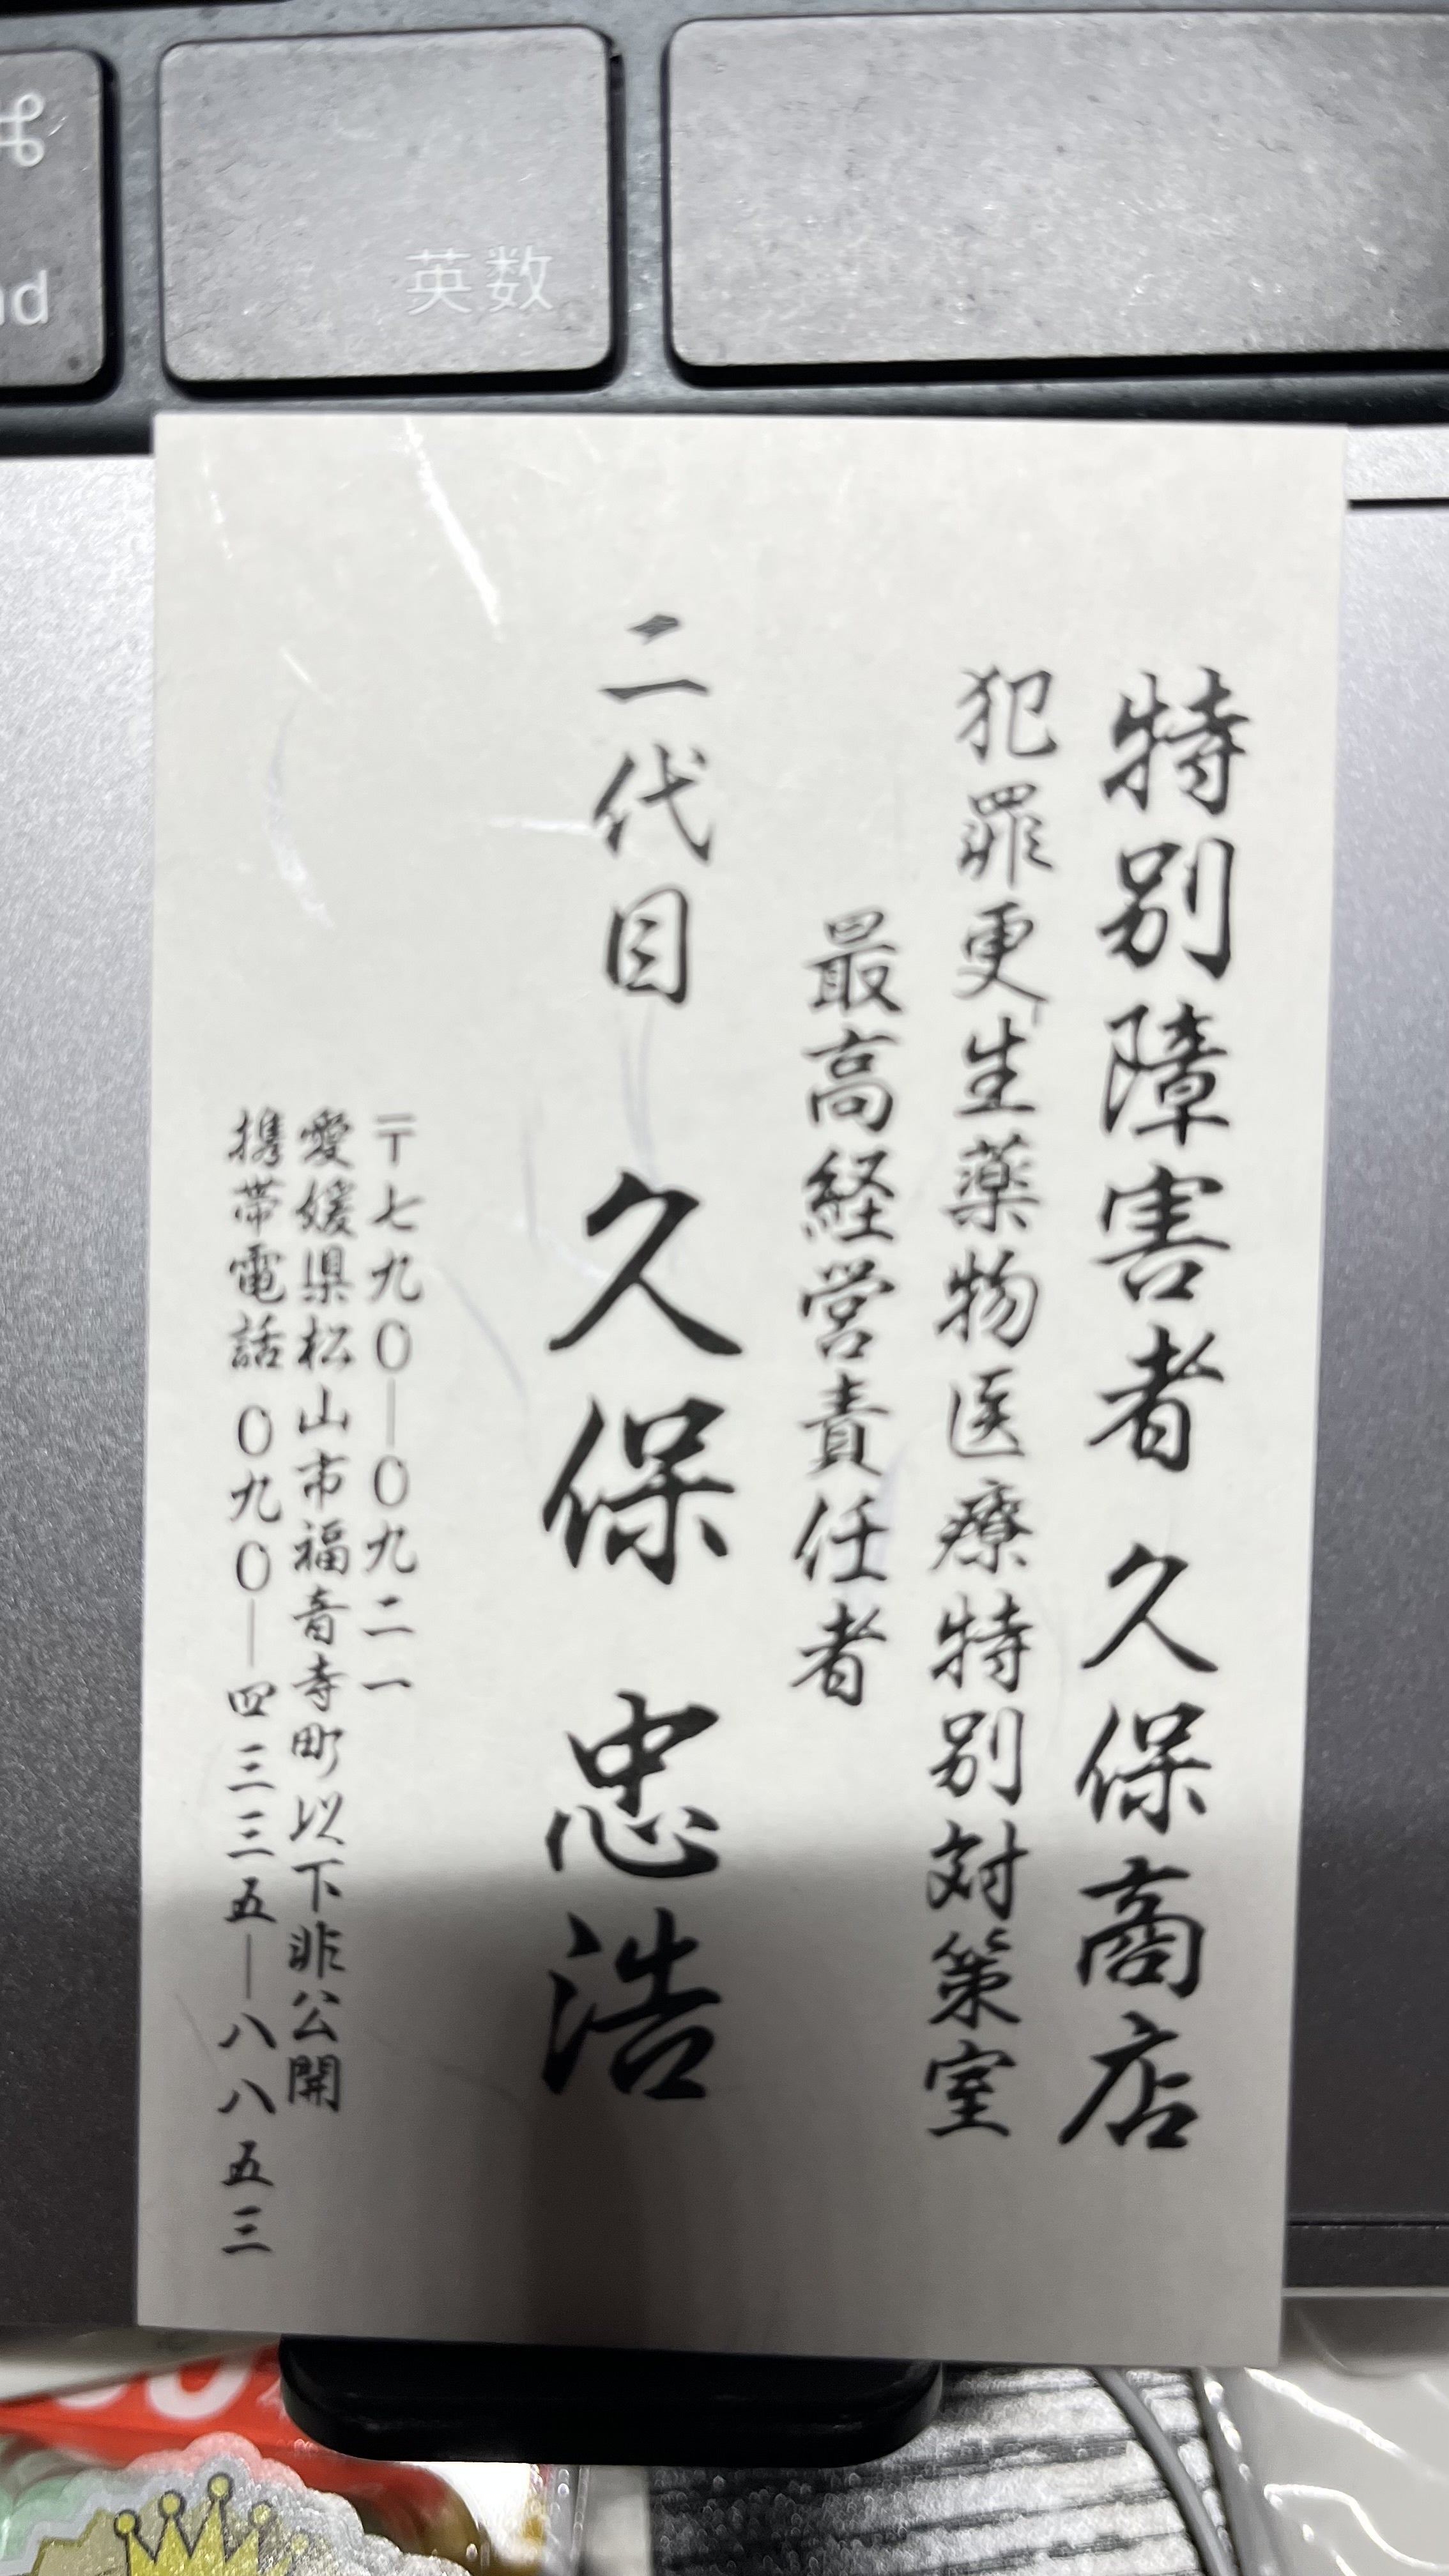 ⌘
nd
英数
特別障害者 久保商店
犯罪更生薬物医療特別対策室
最高経営責任者
二代目 久保 忠浩
〒七九〇―〇九二一
愛媛県松山市福音寺町以下非公開
携帯電話 〇九〇―四三三五―八八五三